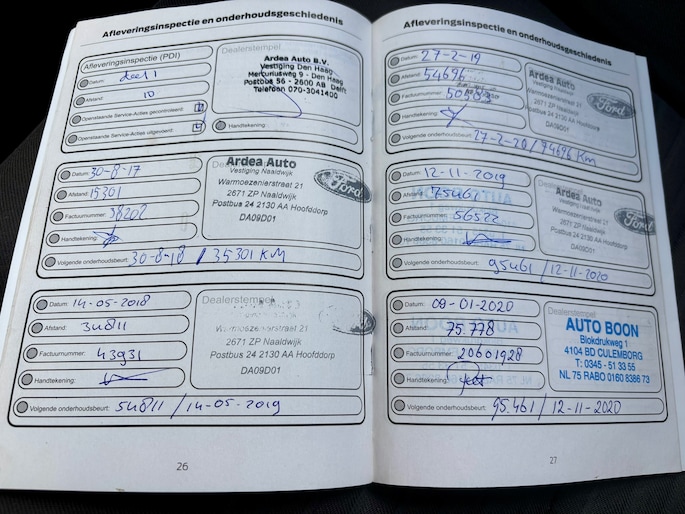 Afleveringsinspectie en onderhoudsgeschiedenis
Afleveringsinspectie (PDI)
Datum:
Afstand: 10
Openstaande Service-Acties gecontroleerd:
Openstaande Service-Acties uitgevoerd:
Dealerstempel
Ardea Auto B.V.
Vestiging Den Haag
Mercuriusweg 9 - Den Haag
Postbus 56 - 2600 AB Delft
Telefoon 070-3041400
Handtekening:
Datum: 30-8-17
Afstand: 15301
Factuurnummer: 38202
Handtekening:
Ardea Auto
Vestiging Naaldwijk
Warmoezenierstraat 21
2671 ZP Naaldwijk
Postbus 24 2130 AA Hoofddorp
DA09D01
Ford
Volgende onderhoudsbeurt: 30-8-18 / 35301 KM
Datum: 14-05-2018
Afstand: 34811
Factuurnummer: 43931
Handtekening:
Dealerstempel
Warmoezenierstraat 21
2671 ZP Naaldwijk
Postbus 24 2130 AA Hoofddorp
DA09D01
Volgende onderhoudsbeurt: 54811 / 14-05-2019
26
Afleveringsinspectie en onderhoudsgeschiedenis
Datum: 27-2-19
Afstand: 54696
Factuurnummer:
Handtekening:
Ardea Auto
Vestiging Naaldwijk
Warmoezenierstraat 21
2671 ZP Naaldwijk
Postbus 24 2130 AA Hoofddorp
DA09D01
Ford
Volgende onderhoudsbeurt: 27-2-20 / 74696 Km
Datum: 12-11-2019
Afstand: 75461
Factuurnummer: 56522
Handtekening:
Ardea Auto
Warmoezenierstraat 21
2671 ZP Naaldwijk
Postbus 24 2130 AA Hoofddorp
DA09D01
Ford
Volgende onderhoudsbeurt: 95461 / 12-11-2020
Datum: 09-01-2020
Afstand: 75.778
Factuurnummer: 20601928
Handtekening:
Dealerstempel
AUTO BOON
Blokdrukweg 1
4104 BD CULEMBORG
T: 0345 - 51 33 55
NL 75 RABO 0160 8386 73
Volgende onderhoudsbeurt: 95.461 / 12-11-2020
27